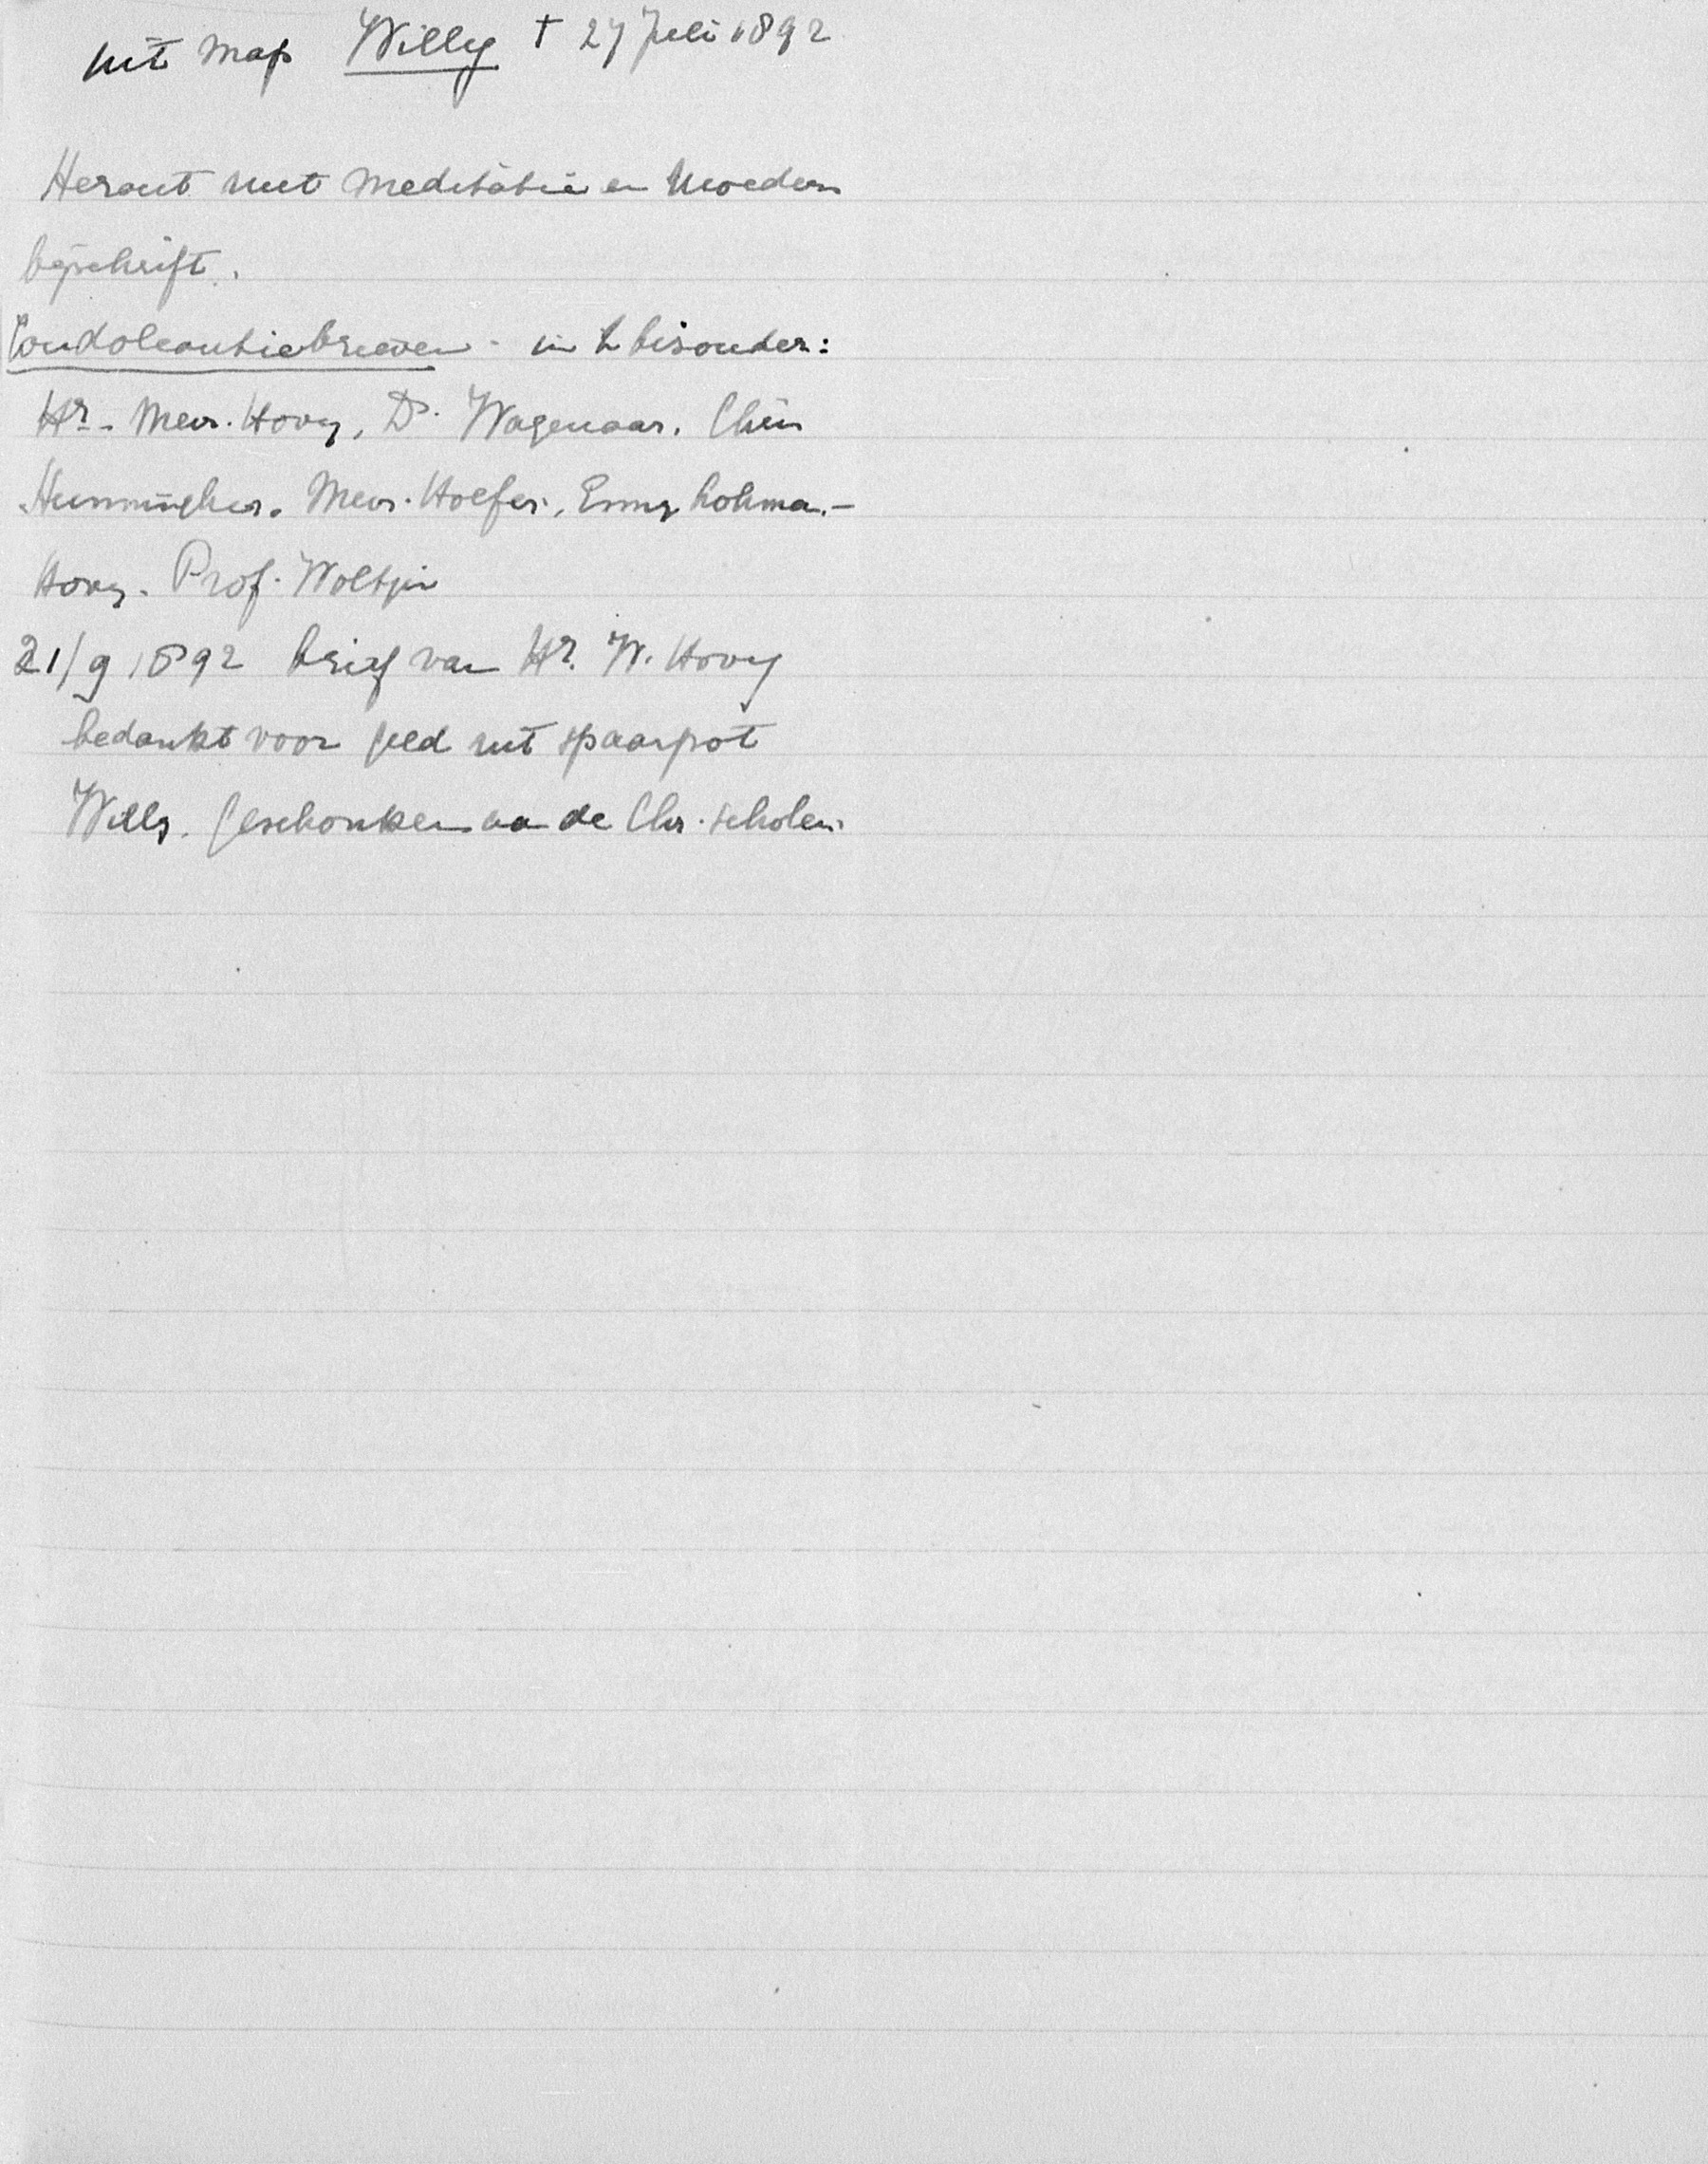 uit map Willy † 27 Juli 1892
Heraut met meditatie en Moeders
bijschrift.
Condoleantiebrieven - in 't bisonder:
Hr - Mevr. Hovy, Dr. Wagenaar.
Mevr. Hoefer, Emmy Lohman -
Hovy. Prof. Woltjer
21/9 1892 brief van Hr. W. Hovy
bedankt voor geld uit spaarpot
Willy. Geschonken aan de Chr. scholen.